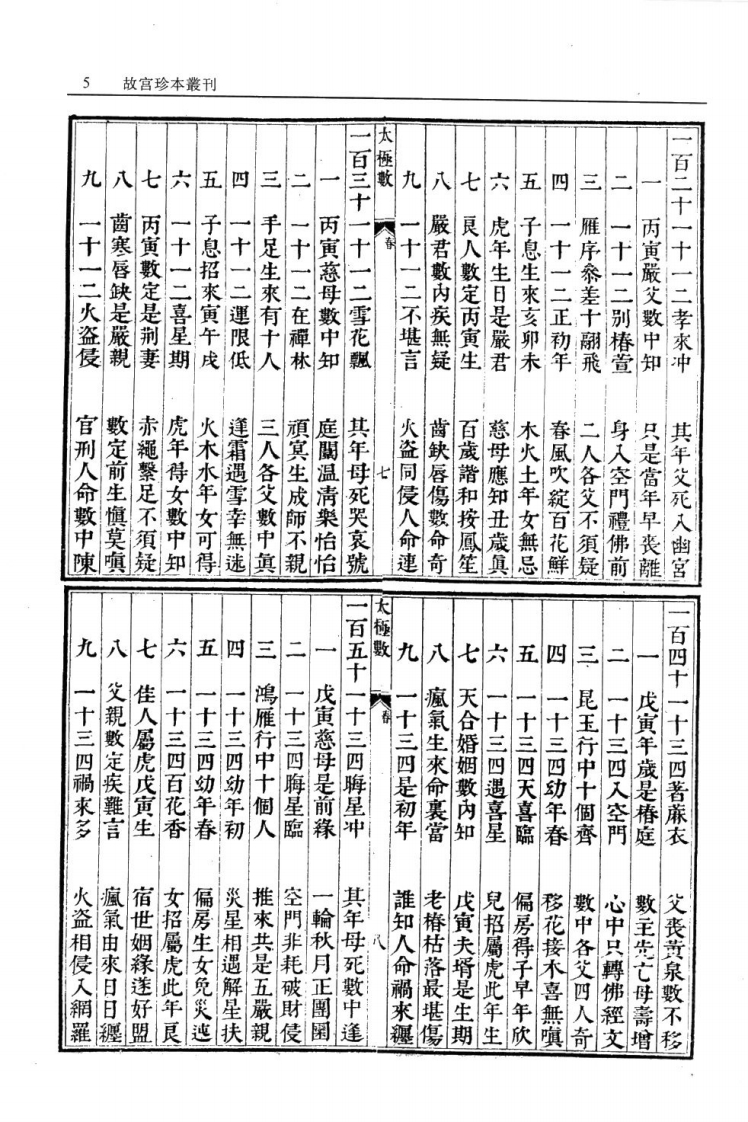 5 故宮珍本叢刊
一百二十 一十一二孝來冲 其年父死入幽宮
一 丙寅嚴父數中知 只是當年早喪離
二 一十一二別椿萱 身入空門禮佛前
三 雁序叅差十翮飛 二人各父不須疑
四 一十一二正初年 春風吹綻百花鮮
五 子息生來亥卯未 木火土年女無忌
六 虎年生日是嚴君 慈母應知丑歲真
七 良人數定丙寅生 百歲諧和按鳳笙
八 嚴君數內疾無疑 齒缺唇傷數命奇
九 一十一二不堪言 火盜同侵人命連
太極數 春 七
一百三十 一十一二雪花飄 其年母死哭哀號
一 丙寅慈母數中知 庭闈温清樂怡怡
二 一十一二在禪林 頑冥生成師不親
三 手足生來有十人 三人各父數中真
四 一十一二運限低 逢霜遇雪幸無迷
五 子息招來寅午戌 火木水年女可得
六 一十一二喜星期 虎年得女數中知
七 丙寅數定是荊妻 赤繩繫足不須疑
八 齒寒唇缺是嚴親 數定前生慎莫嗔
九 一十一二火盜侵 官刑人命數中陳
一百四十 一十三四著麻衣 父喪黃泉數不移
一 戊寅年歲是椿庭 數主先亡母壽增
二 一十三四入空門 心中只轉佛經文
三 昆玉行中十個齊 數中各父四人奇
四 一十三四幼年春 移花接木喜無嗔
五 一十三四天喜臨 偏房得子早年欣
六 一十三四遇喜星 兒招屬虎此年生
七 天合婚姻數內知 戊寅夫壻是生期
八 瘋氣生來命裏當 老椿枯落最堪傷
九 一十三四是初年 誰知人命禍來纏
太極數 春 八
一百五十 一十三四晦星冲 其年母死數中逢
一 戊寅慈母是前緣 一輪秋月正團圓
二 一十三四晦星臨 空門非耗破財侵
三 鴻雁行中十個人 推來共是五嚴親
四 一十三四幼年初 災星相遇解星扶
五 一十三四幼年春 偏房生女免災迍
六 一十三四百花香 女招屬虎此年良
七 佳人屬虎戊寅生 宿世姻緣遂好盟
八 父親數定疾難言 瘋氣由來日日纏
九 一十三四禍來多 火盜相侵入網羅